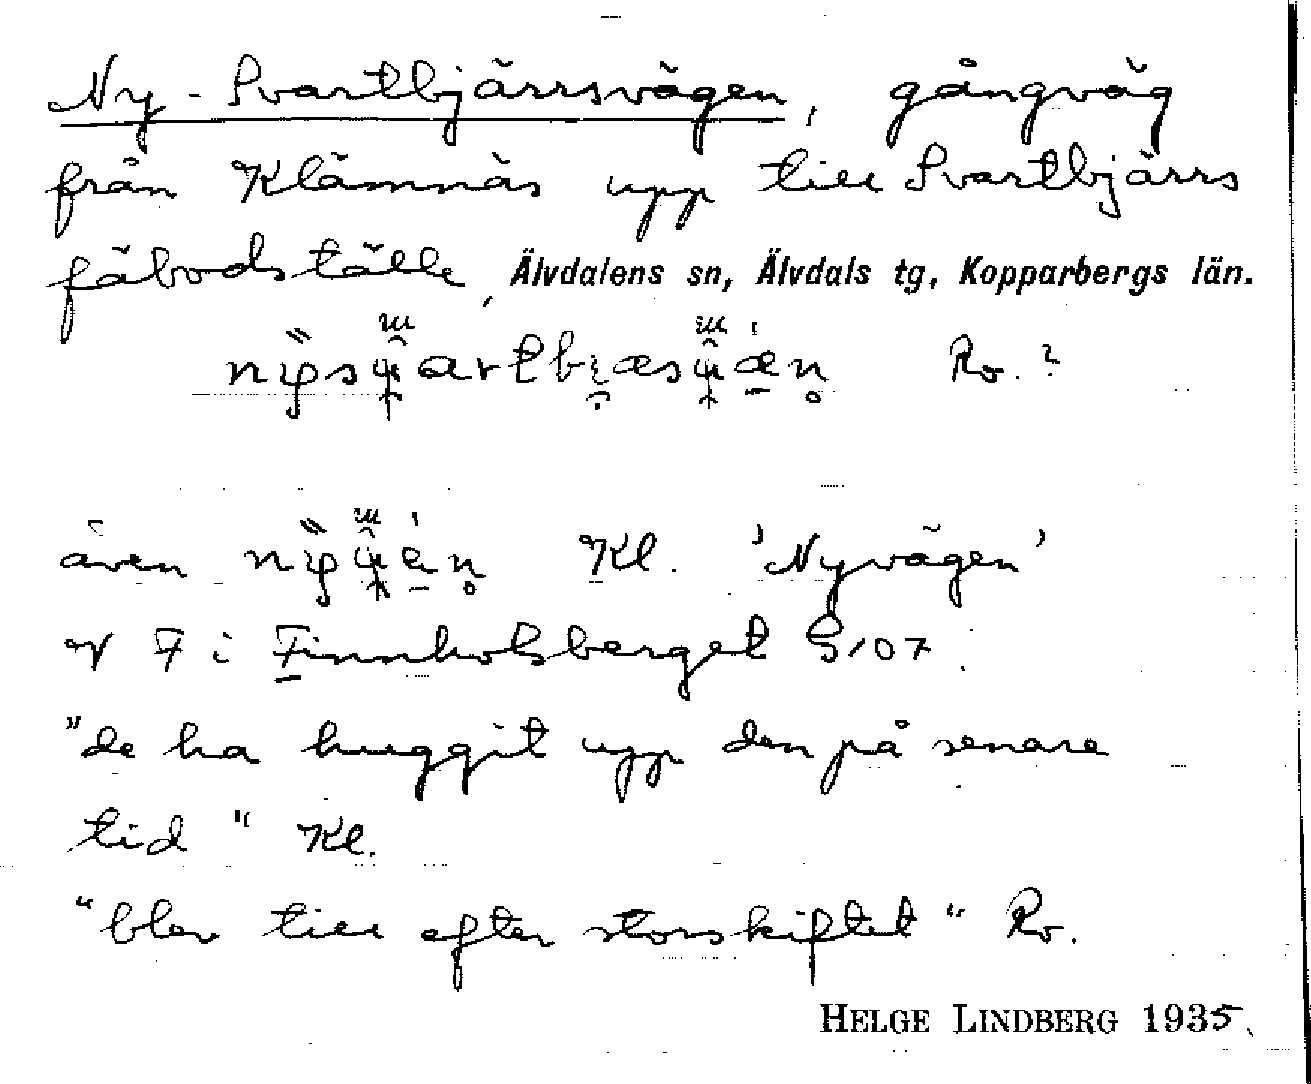 Ny-Svartbjärrsvägen, gångväg
från Klämnäs upp till Svartbjärrs
fäbodställe, Älvdalens sn, Älvdals tg, Kopparbergs län.
Ro.?
även Kl. 'Nyvägen'
V F i Finnholsberget G107.
"de ha huggit upp den på senare
tid" Kl.
"blev till efter storskiftet" Ro.
HELGE LINDBERG 1935.